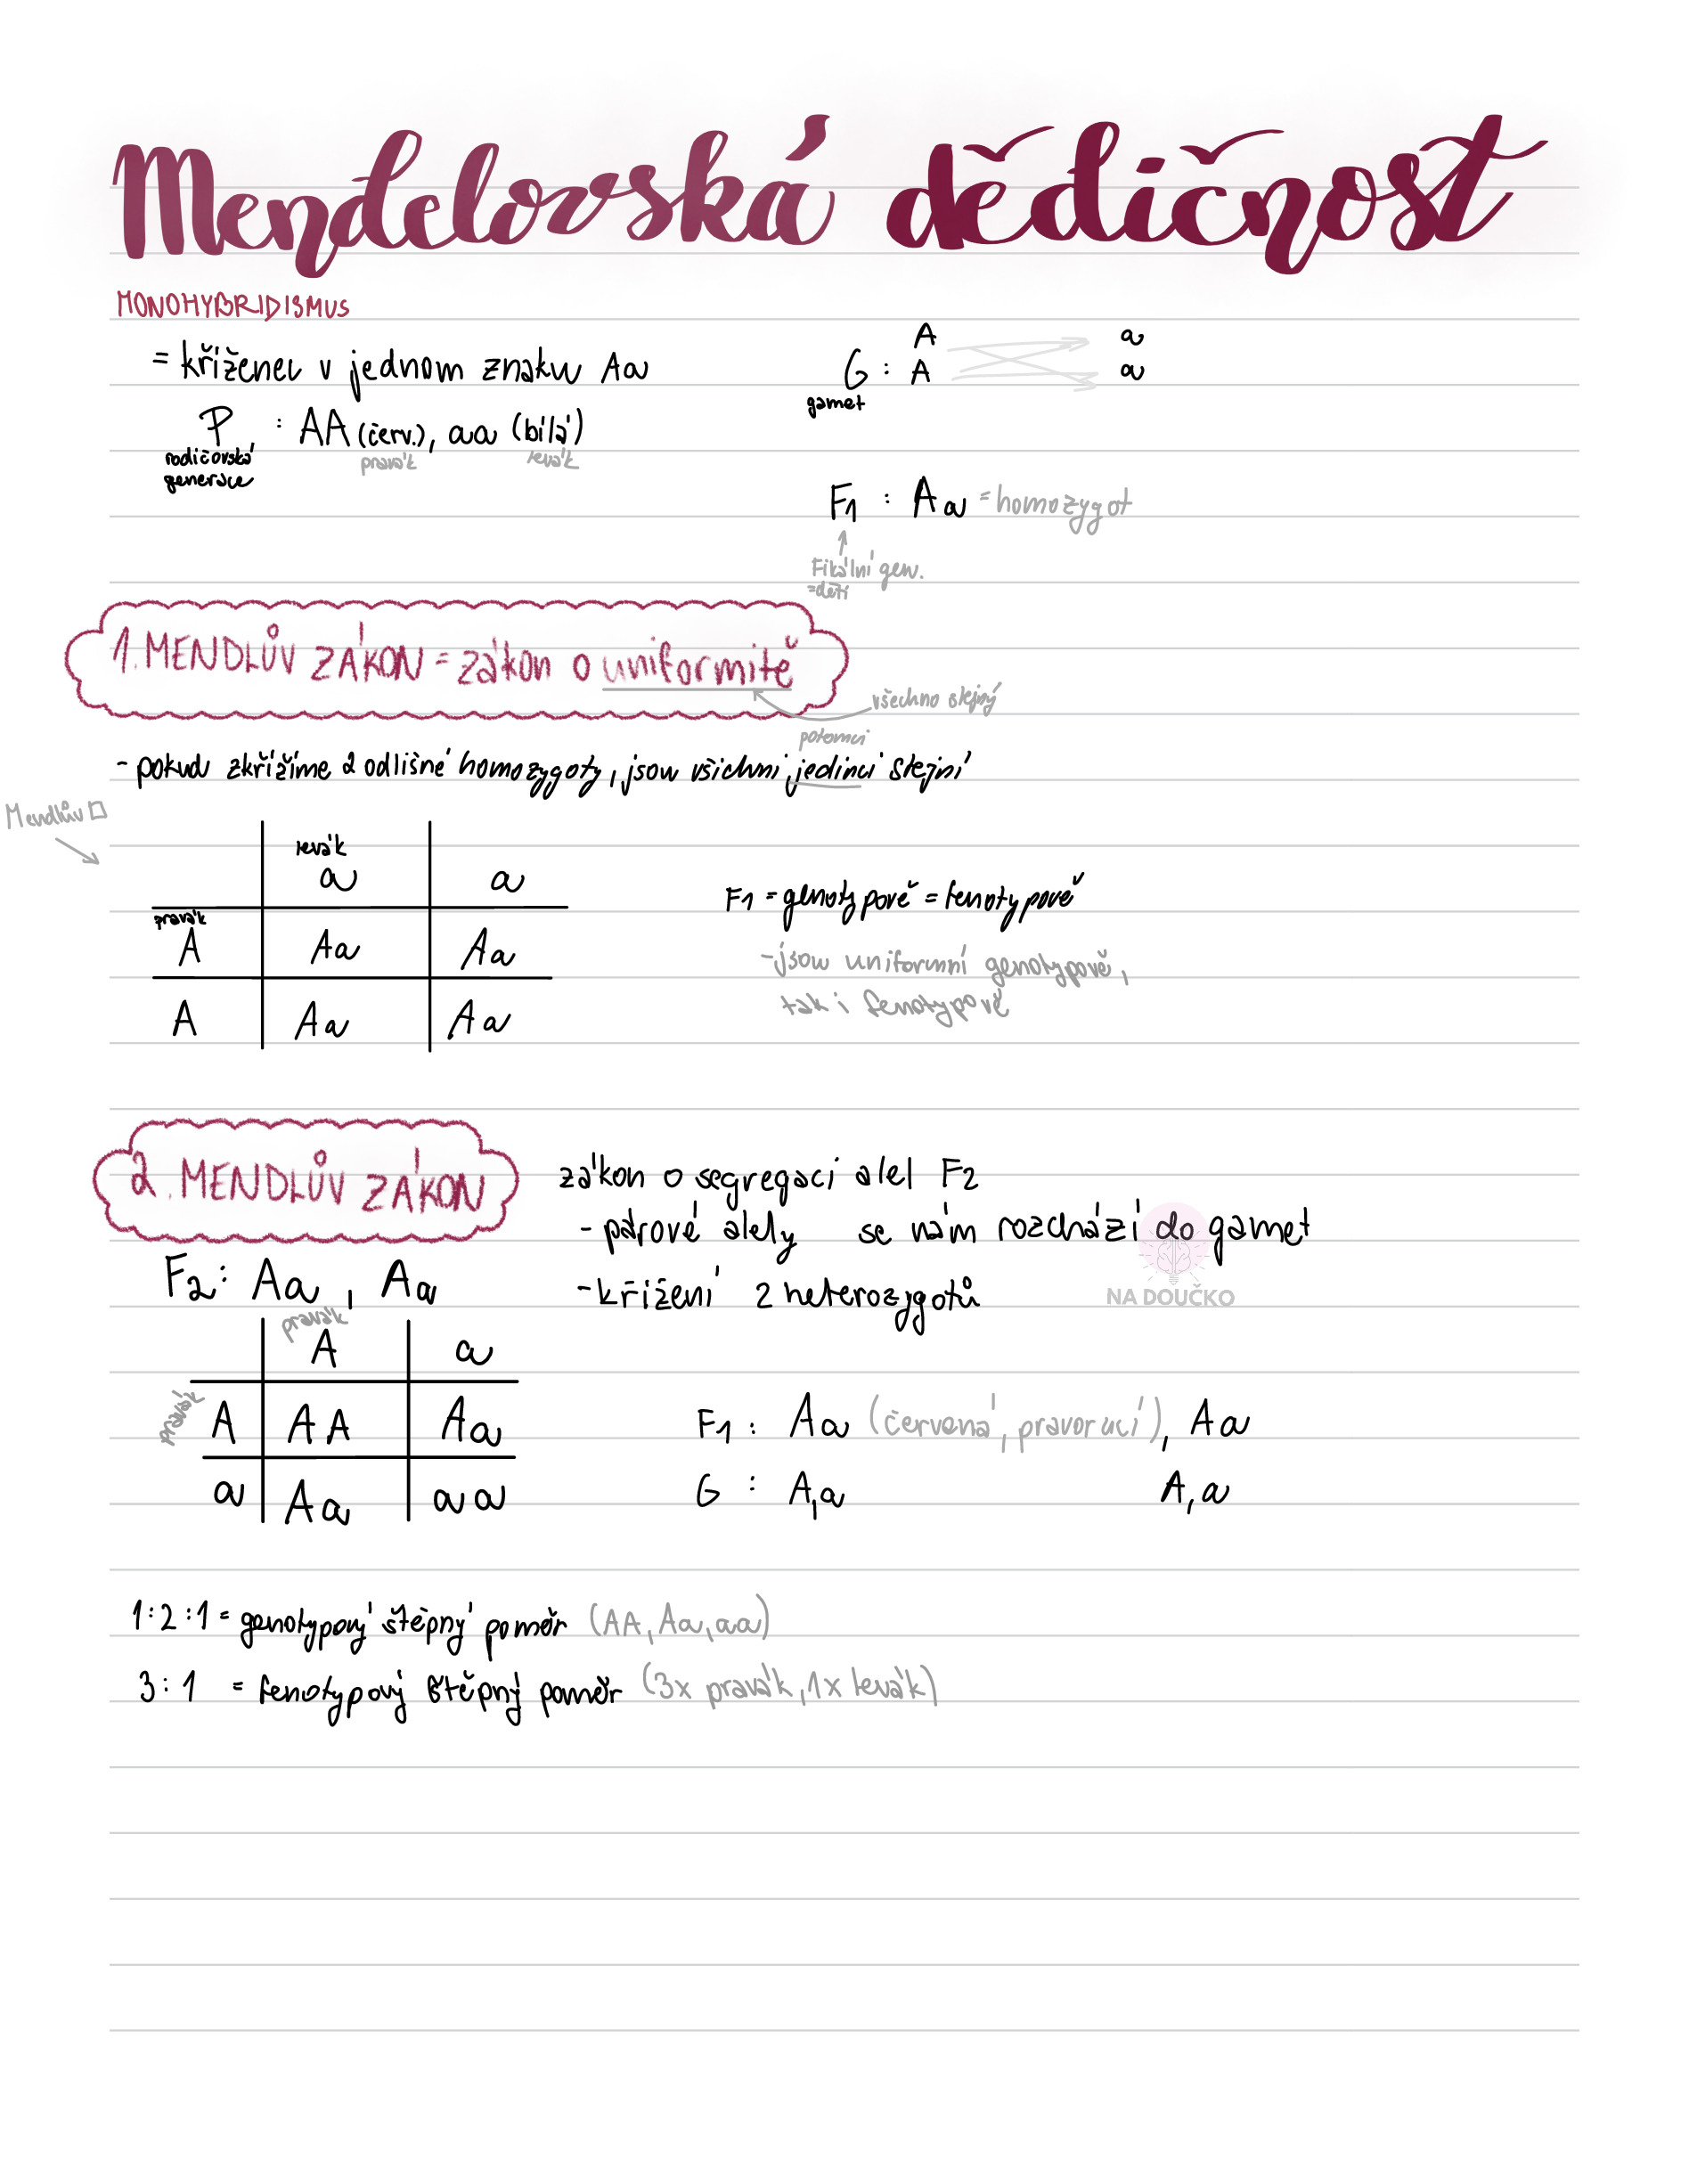 Mendelovská dědičnost
MONOHYBRIDISMUS
= kříženec v jednom znaku Aa
P : AA (červ.), aa (bílá)
rodičovská
generace
pravák levák
A a
G : A a
gamet
F1 : Aa = homozygot
Filální gen.
= děti
1. MENDLŮV ZÁKON = zákon o uniformitě
všechno stejný
potomci
- pokud zkřížíme 2 odlišné homozygoty, jsou všichni jedinci stejní
Mendlův □
levák
a a
pravák
A Aa Aa
A Aa Aa
F1 = genotypově = fenotypově
- jsou uniformní genotypově,
tak i fenotypově
2. MENDLŮV ZÁKON
zákon o segregaci alel F2
- párové alely se nám rozchází do gamet
- křížení 2 heterozygotů
NA DOUČKO
F2: Aa, Aa
pravák
A a
pravák
A AA Aa
a Aa aa
F1 : Aa (červená, pravorucí), Aa
G : A,a A,a
1:2:1 = genotypový štěpný poměr (AA, Aa, aa)
3:1 = fenotypový štěpný poměr (3x pravák, 1x levák)